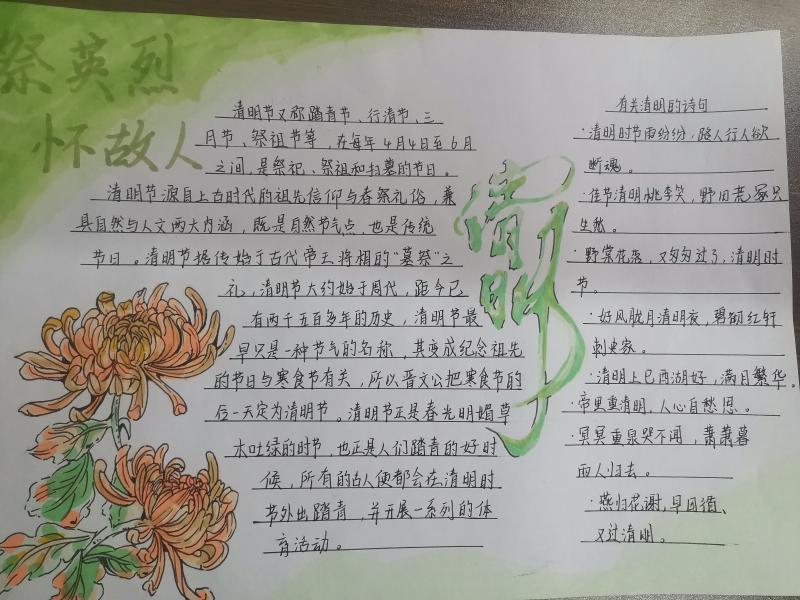 祭英烈
怀故人
清明节又称踏青节、行清节、三
月节、祭祖节等，在每年4月4日至6月
之间，是祭祀、祭祖和扫墓的节日。
清明节源自上古时代的祖先信仰与春祭礼俗，兼
具自然与人文两大内涵，既是自然节气点，也是传统
节日。清明节据传始于古代帝王将相的“墓祭”之
礼，清明节大约始于周代，距今已
有两千五百多年的历史，清明节最
早只是一种节气的名称，其变成纪念祖先
的节日与寒食节有关，所以晋文公把寒食节的
后一天定为清明节。清明节正是春光明媚草
木吐绿的时节，也正是人们踏青的好时
候，所有的古人便都会在清明时
节外出踏青，并开展一系列的体
育活动。
清明
有关清明的诗句
·清明时节雨纷纷，路人行人欲
断魂。
·佳节清明桃李笑，野田荒冢只
生愁。
·野棠花落，又匆匆过了，清明时
节。
·好风胧月清明夜，碧砌红轩
刺史家。
·清明上巳西湖好，满目繁华。
·帝里重清明，人心自愁思。
·冥冥重泉哭不闻，萧萧暮
雨人归去。
·燕归花谢，早因循、
又过清明。